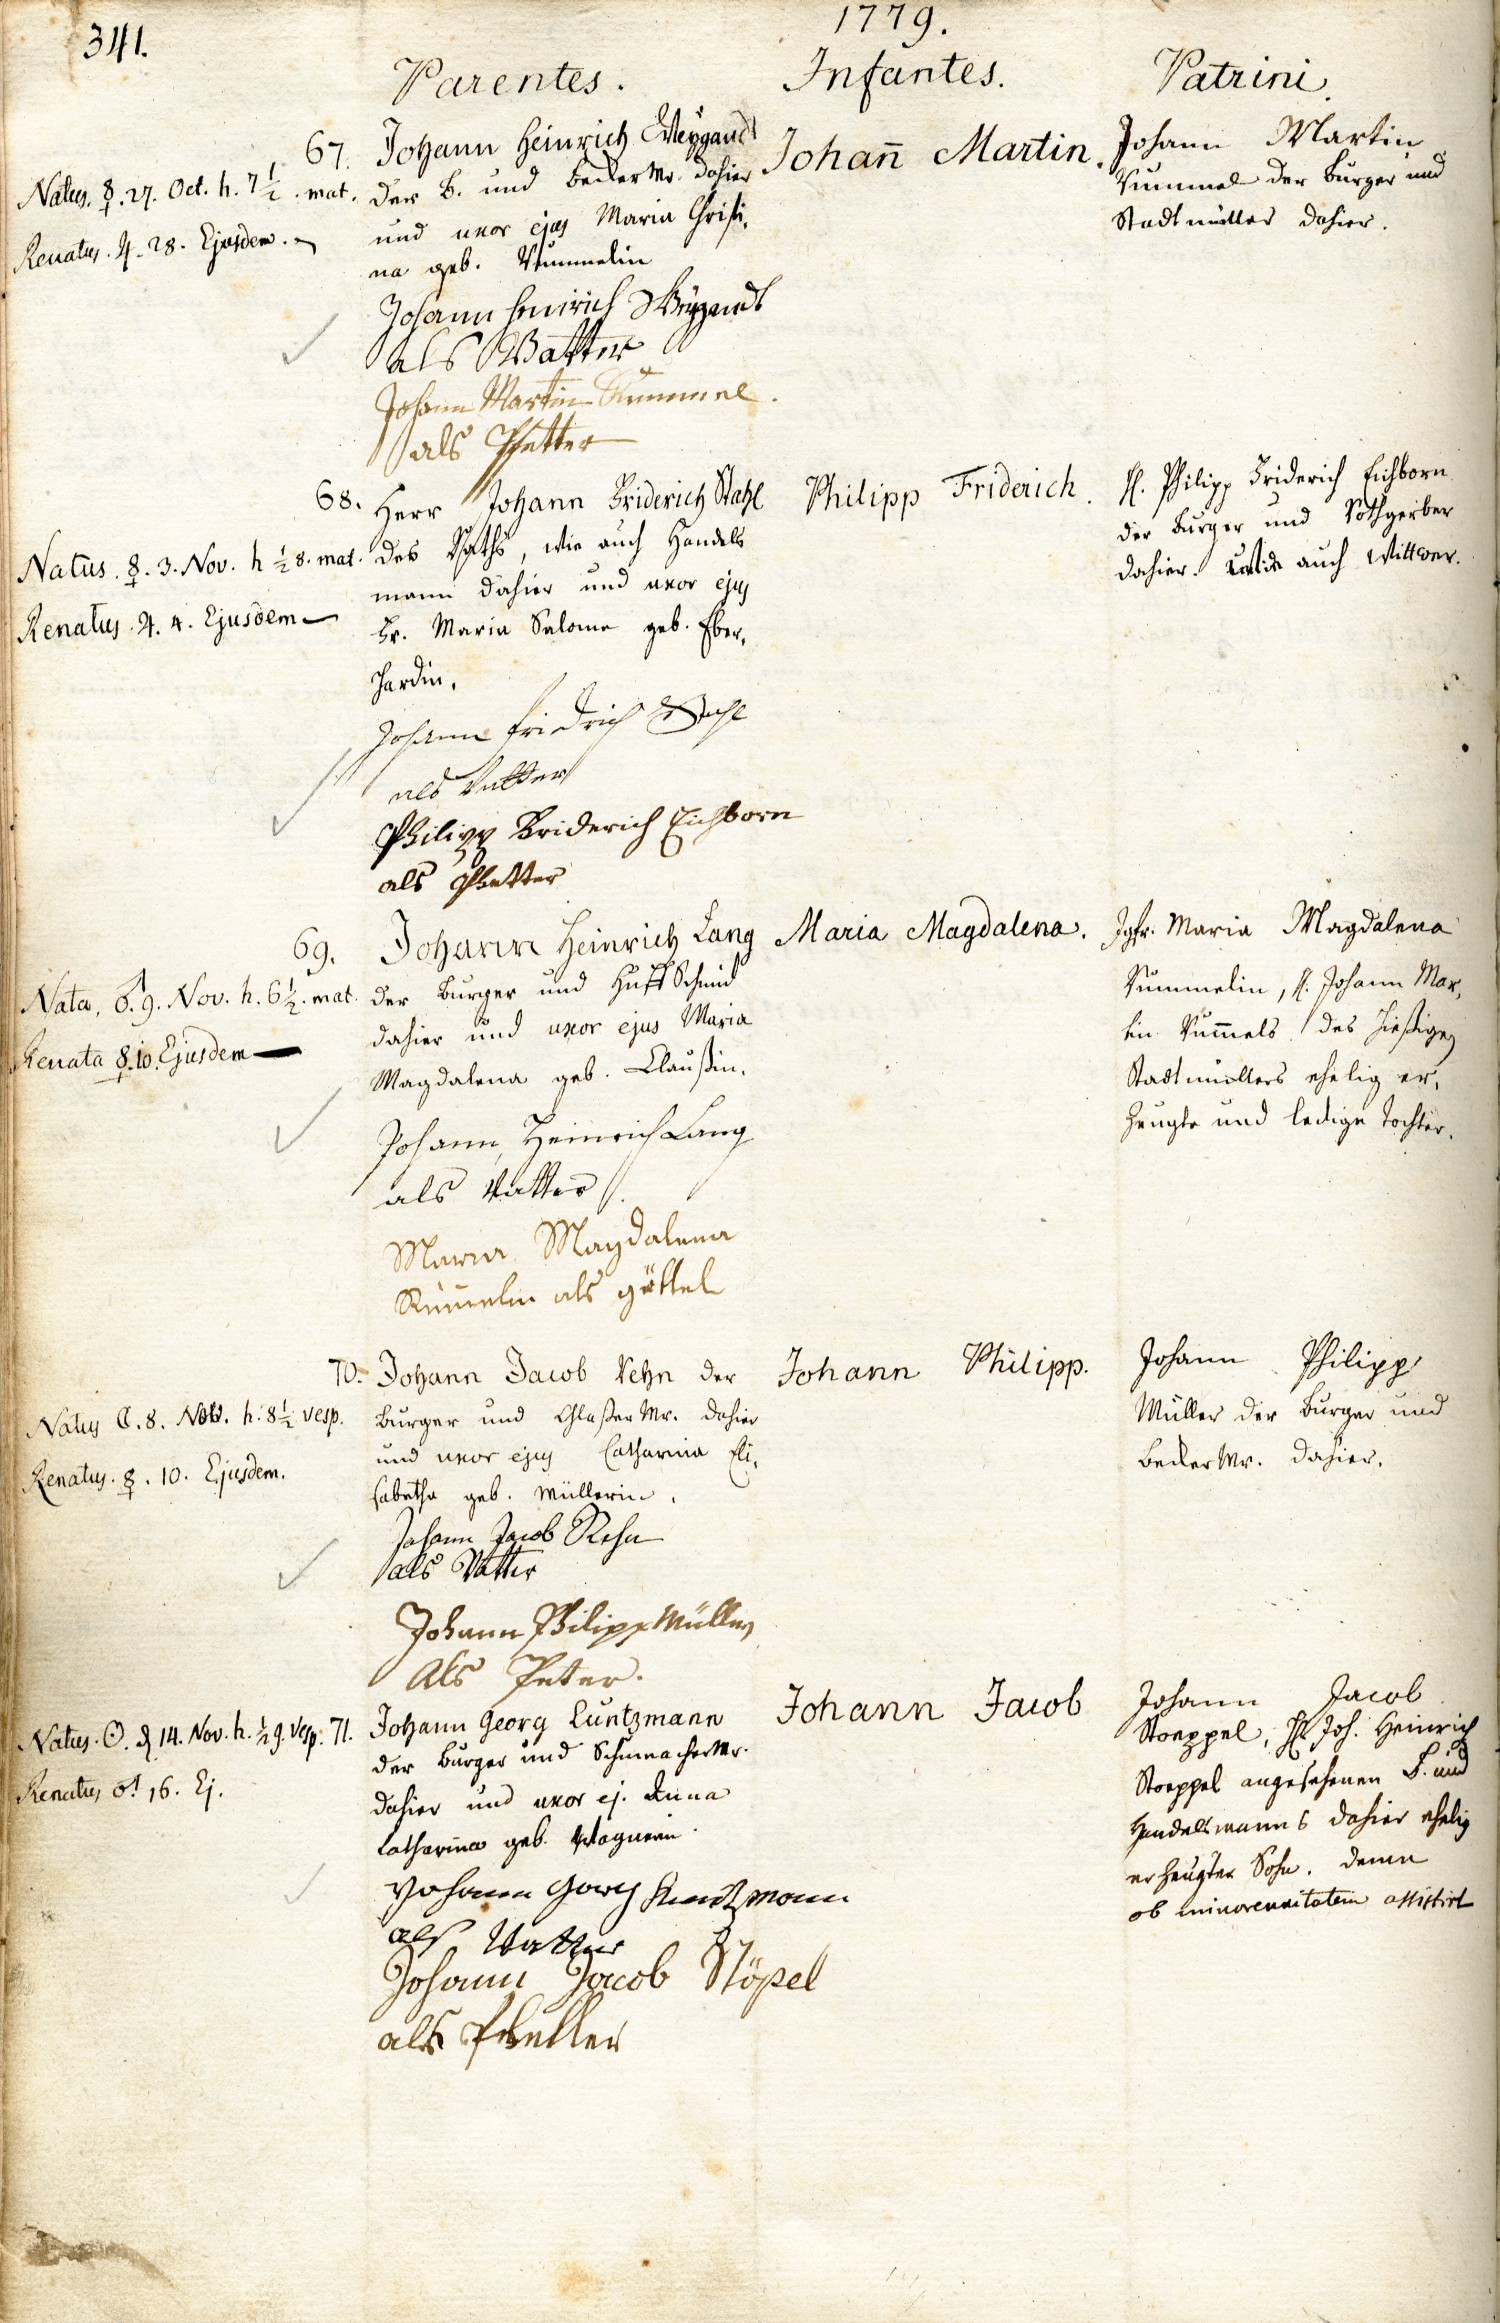 341.
1779.
Parentes.
Infantes.
Patrini.
67.
Natus. ☿. 27. Oct. h. 7 1/2. mat.
Renatus. ♃. 28. Ejusdem.
Johann Heinrich Weygand
der B. und Becker Mr. dahier
und uxor ejus Maria Christi,
na geb. Rummelin
Johann Henrich Weygandt
als Vatter
Johann Martin Rummel.
als Pfetter
Johan̄ Martin.
Johann Martin
Rummel der Burger und
Stadtmüller dahier.
68.
Natus. ☿. 3. Nov. h 1/2 8. mat.
Renatus. ♃. 4. Ejusdem
Herr Johann Friderich Stahl
des Raths, wie auch Handels
mann dahier und uxor ejus
Fr. Maria Salome geb. Eber,
hardin.
Johann Friedrich Stahl
als Vatter
Philipp Friderich Eichborn
als Phetter
Philipp Friderich.
H. Philipp Friderich Eichborn
der Burger und Rothgerber
dahier. auch Wittwer.
69.
Nata, ♂. 9. Nov. h. 6 1/2. mat.
Renata ☿. 10. Ejusdem
Johann Heinrich Lang
der Burger und Huff Schmid
dahier und uxor ejus Maria
Magdalena geb. Claußin.
Johann Heinrich Lang
als Vatter.
Maria Magdalena
Rum̄elin als göttel
Maria Magdalena.
Jgfr. Maria Magdalena
Rummelin, H. Johann Mar,
tin Rum̄els des hießigen
Stadtmüllers ehelig er,
zeugte und ledige Tochter.
70.
Natus ☾. 8. Nov. h. 8 1/2 vesp.
Renatus. ☿. 10. Ejusdem.
Johann Jacob Rehn der
Burger und Glaßer Mr. dahier
und uxor ejus Catharina Eli,
sabetha geb. Müllerin.
Johann Jacob Rehn
als Vatter
Johann Philipp Müller
Als Peter.
Johann Philipp.
Johann Philipp
Müller der Burger und
Becker Mr. dahier.
Natus. ☉. d 14. Nov. h. 1/2 9. Vesp. 71.
Renatus ♂ 16. Ej.
Johann Georg Cuntzmann
der Burger und Schumacher Mr.
dahier und uxor ej. Anna
Catharina geb. Wagnerin.
Johann Gorg Kuntzmann
als Vatter
Johann Jacob Stöpel
als Phetter
Johann Jacob
Johann Jacob
Stoeppel, H. Joh. Heinrich
Stoeppel angesehenen B. und
Handelsmanns dahier ehelig
erzeugter Sohn. deme
ob minorennitatem assistirt